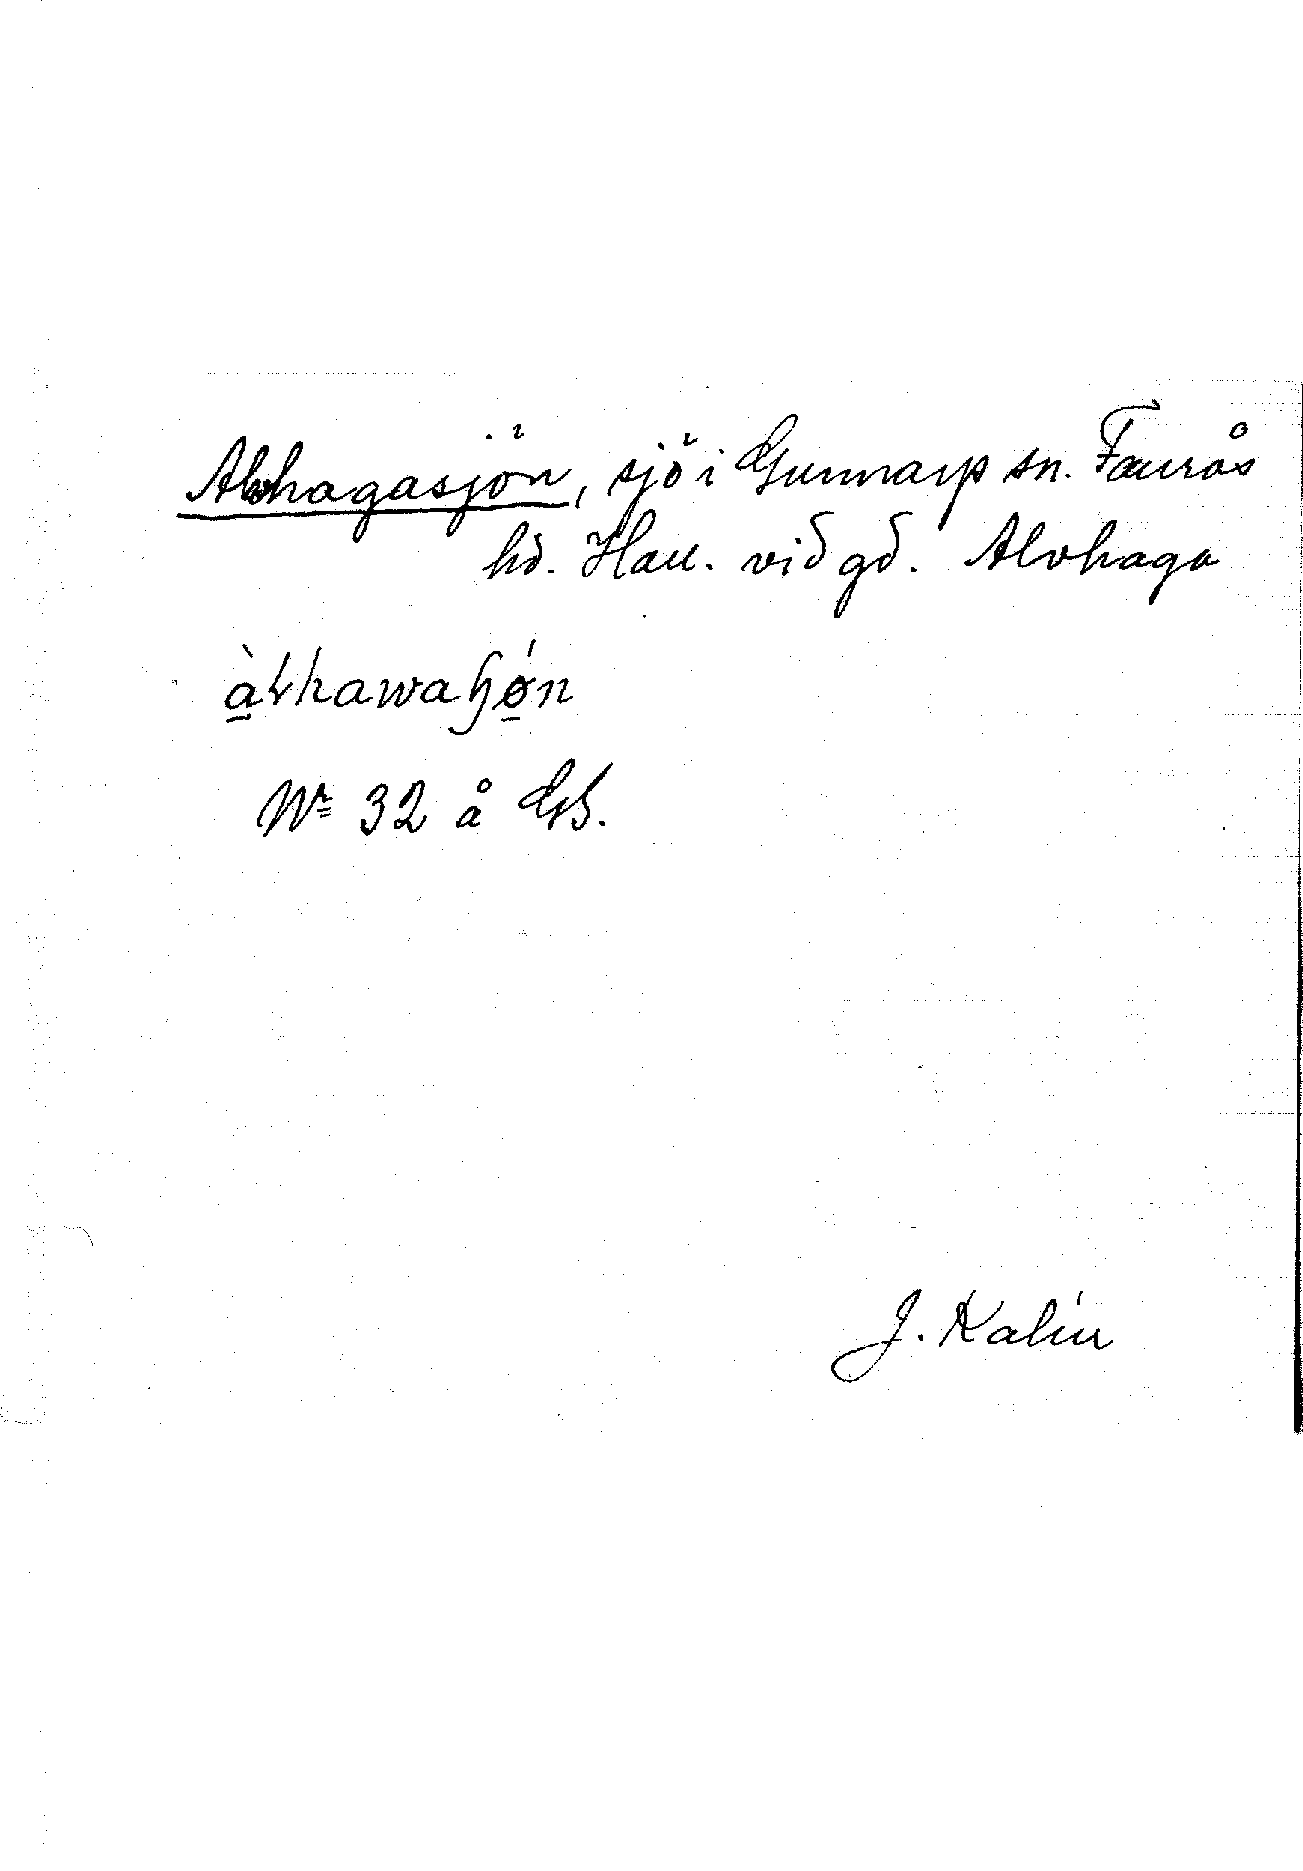 Alvhagasjön, sjö i Gunnarp sn. Faurås
hd. Hall. vid gd. Alvhaga
Nr 32 å GS.
J. Kalén